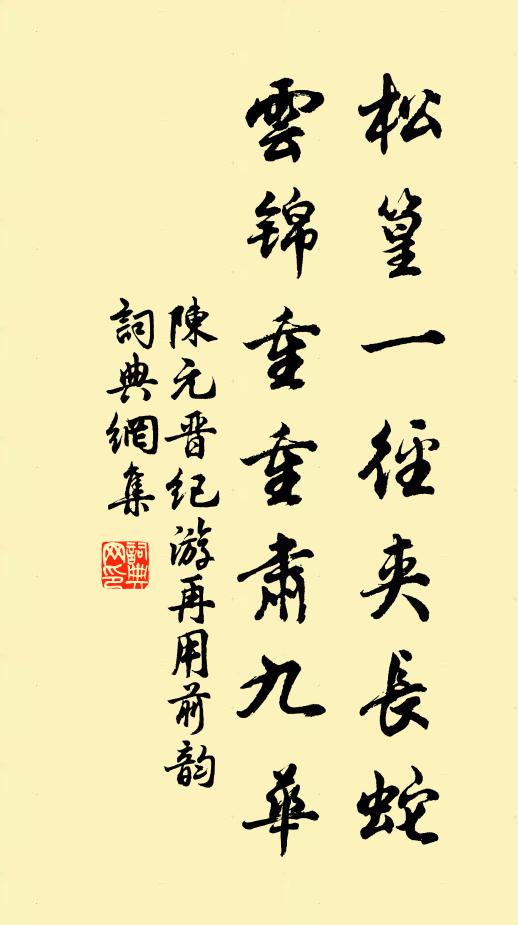 松篁一徑夾長蛇
雲錦重重肅九華
陳元晋紀游再用前韵
詞典網集
詞典网印